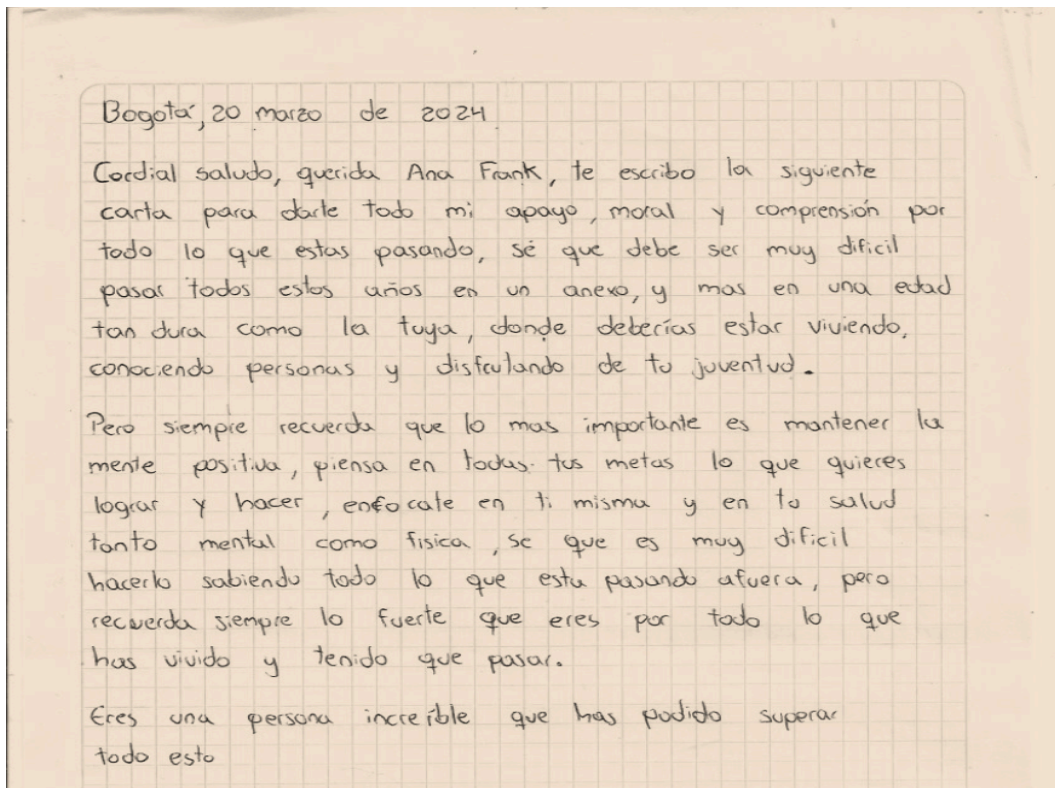 Bogotá, 20 marzo de 2024
Cordial saludo, querida Ana Frank, te escribo la siguiente
carta para darle todo mi apoyo, moral y comprensión por
todo lo que estas pasando, sé que debe ser muy dificil
pasar todos estos años en un anexo, y mas en una edad
tan dura como la tuya, donde deberías estar viviendo,
conociendo personas y disfrutando de tu juventud.
Pero siempre recuerda que lo mas importante es mantener la
mente positiva, piensa en todas tus metas lo que quieres
lograr y hacer, enfocate en ti misma y en tu salud
tanto mental como fisica, se que es muy dificil
hacerlo sabiendo todo lo que esta pasando afuera, pero
recuerda siempre lo fuerte que eres por todo lo que
has vivido y tenido que pasar.
Eres una persona increíble que has podido superar
todo esto